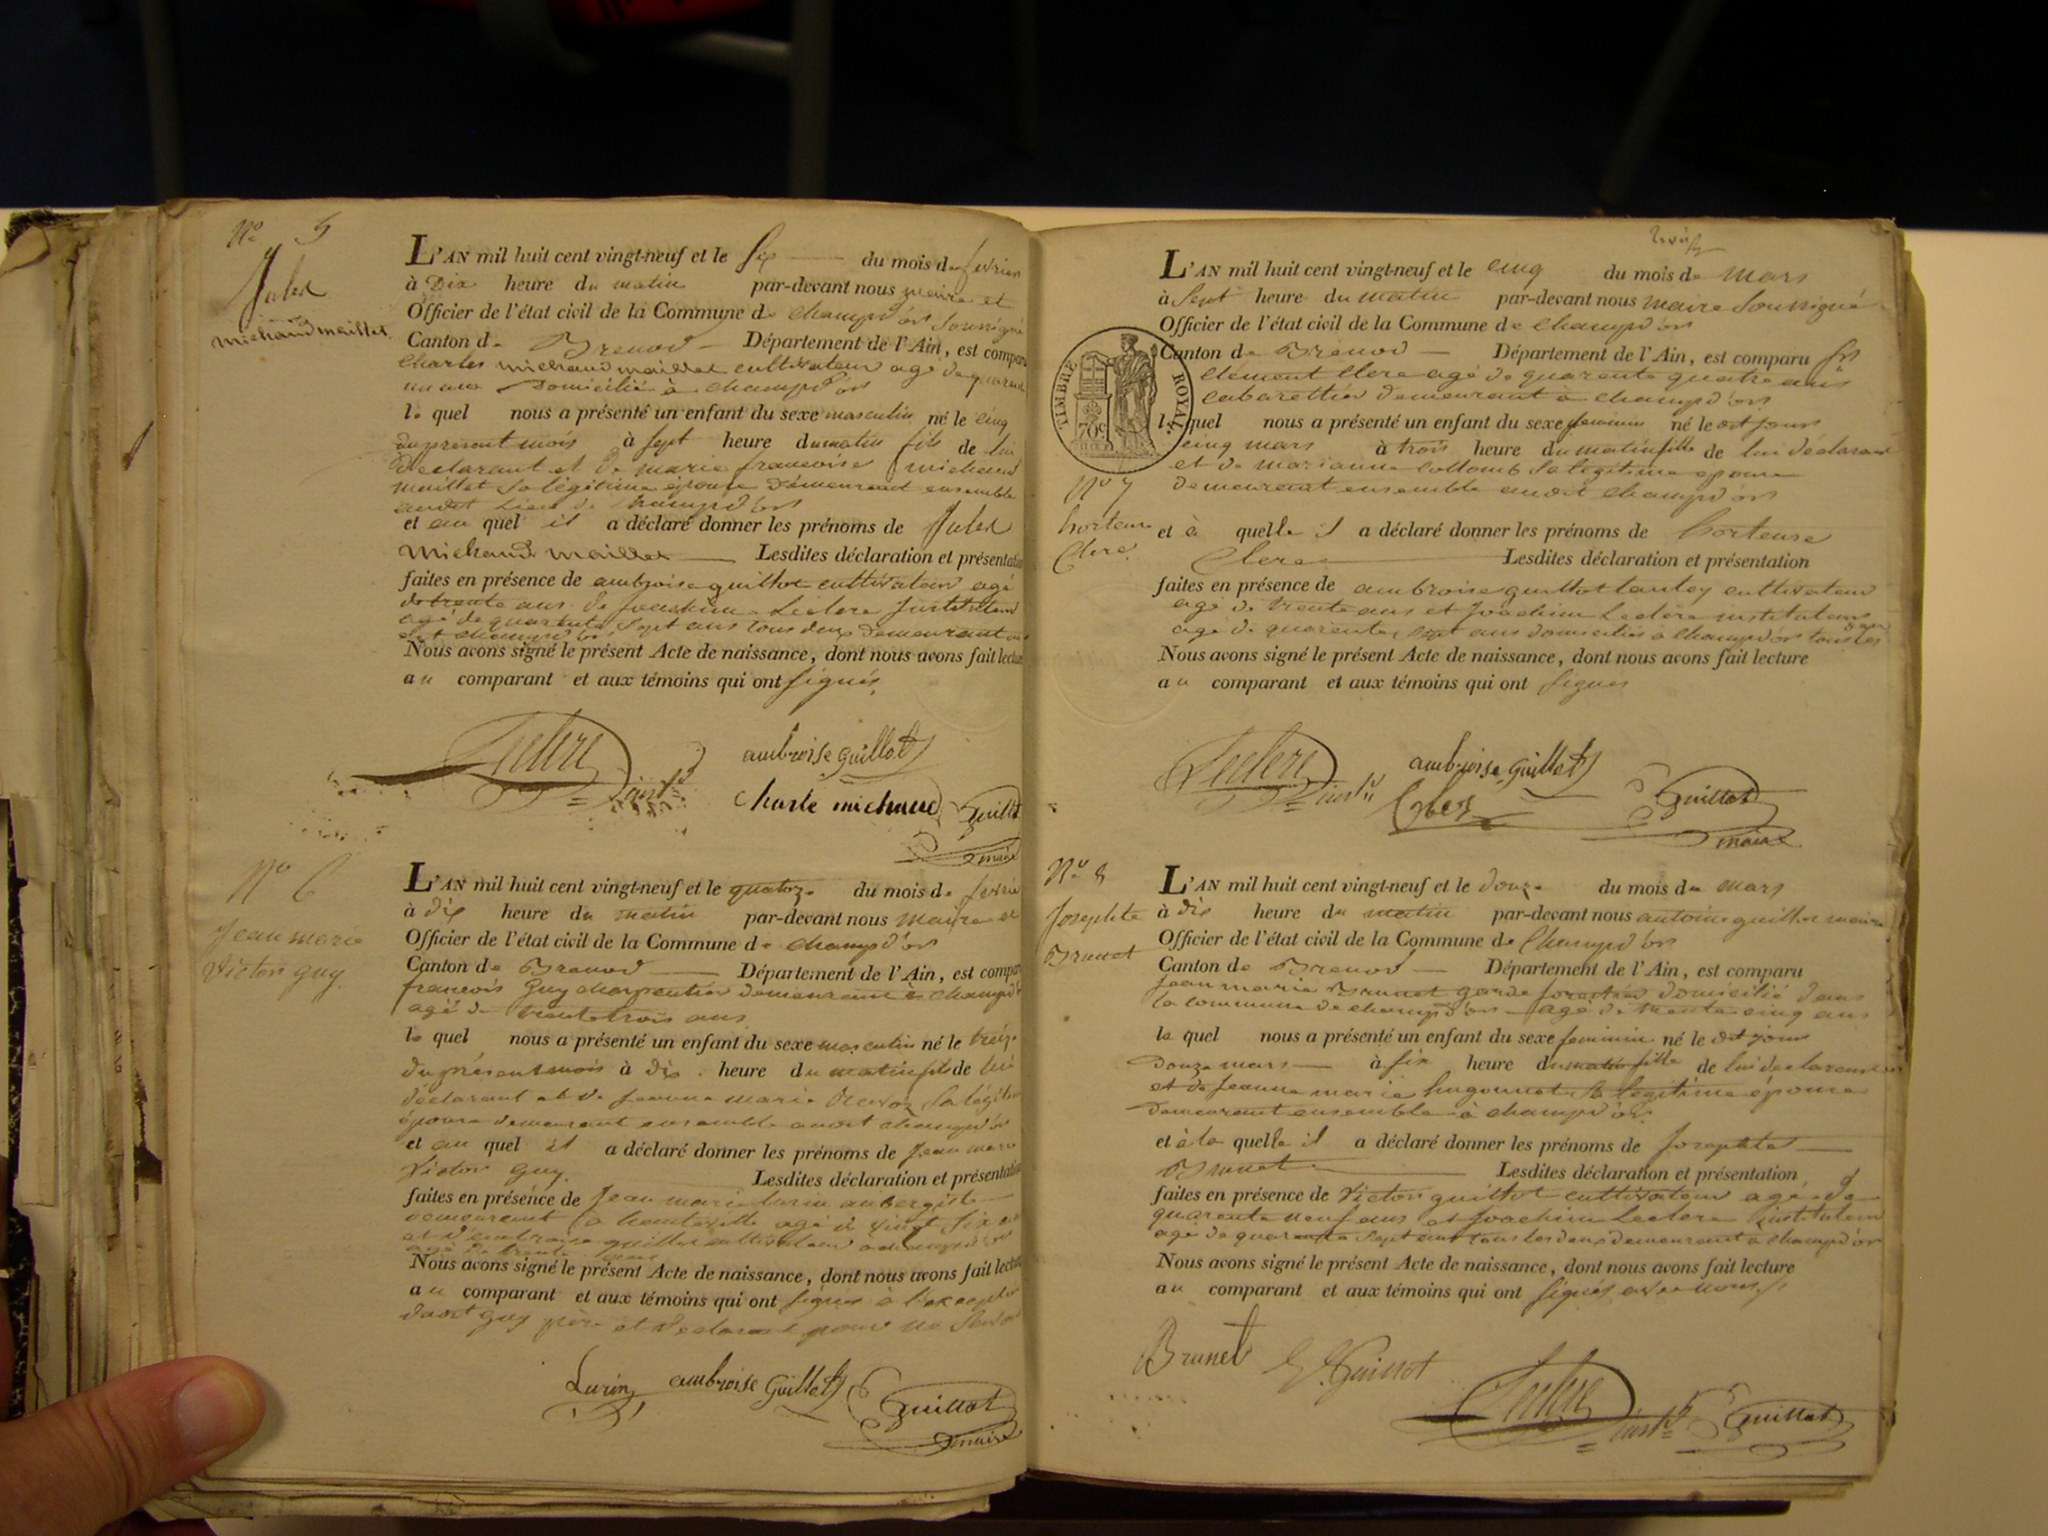 No 5
Jules
michaud maillet
L'AN mil huit cent vingt-neuf et le six du mois de fevrier
à Dix heure du matin par-devant nous maire et
Officier de l'état civil de la Commune de champd'or soussigné
Canton de Brenod Département de l'Ain, est comparu
Charles michaud maillet cultivateur agé de quarante
un ans Domicilié à champd'or
le quel nous a présenté un enfant du sexe masculin né le cinq
du present mois à sept heure du matin fils de lui
déclarant et de marie francoise michaud
maillet sa légitime épouse Demeurant ensemble
audit lieu de champd'or
et au quel il a déclaré donner les prénoms de Jules
michaud maillet Lesdites déclaration et présentation
faites en présence de ambroise guillot cultivateur agé
de trente ans de Joachim Leclere Instituteur
agé de quarante sept ans tous deux Demeurant au
dit champd'or
Nous avons signé le présent Acte de naissance, dont nous avons fait lecture
au comparant et aux témoins qui ont signés
Leclerc inst ambroise guillot
charle michaud Guillot
maire
No 6
Jean marie
Victor guy
L'AN mil huit cent vingt-neuf et le quatorze du mois de fevrier
à dix heure du matin par-devant nous maire et
Officier de l'état civil de la Commune de champd'or
Canton de Brenod Département de l'Ain, est comparu
francois Guy charpentier demeurant à champd'or
agé de trente trois ans
le quel nous a présenté un enfant du sexe masculin né le treize
du présent mois à dix heure du matin fils de lui
déclarant et de Jeanne marie sa légitime
épouse demeurant ensemble audit champd'or
et au quel il a déclaré donner les prénoms de Jean marie
Victor guy Lesdites déclaration et présentation
faites en présence de Jean marie Lurin aubergiste
demeurant à hauteville agé de vingt six ans
et d'ambroise guillot cultivateur à champd'or
agé de trente ans
Nous avons signé le présent Acte de naissance, dont nous avons fait lecture
au comparant et aux témoins qui ont signés à l'exception
dudit guy père et déclarant pour ne savoir
Lurin ambroise guillot Guillot
maire
L'AN mil huit cent vingt-neuf et le cinq du mois de mars
à Sept heure du matin par-devant nous maire soussigné
Officier de l'état civil de la Commune de champd'or
Canton de Brenod Département de l'Ain, est comparu frs
Clément Clerc agé de quarante quatre ans
cabarettier demeurant à champd'or
le quel nous a présenté un enfant du sexe feminin né le dit jour
cinq mars à trois heure du matin fille de lui déclarant
et de marianne collomb sa légitime épouse
demeurant ensemble audit champd'or
TIMBRE ROYAL
70c
No 7
hortense
Clerc
et à quelle il a déclaré donner les prénoms de hortense
Clerc Lesdites déclaration et présentation
faites en présence de ambroise guillot tantey cultivateur
agé de trente ans et Joachim Leclere instituteur
agé de quarante sept ans domiciliés à champd'or tous les deux
Nous avons signé le présent Acte de naissance, dont nous avons fait lecture
au comparant et aux témoins qui ont signés
Leclerc inst ambroise guillot
Clerc Guillot
maire
No 8
Josephte
Brunet
L'AN mil huit cent vingt-neuf et le douze du mois de mars
à dix heure du matin par-devant nous antoine guillot maire
Officier de l'état civil de la Commune de Champd'or
Canton de Brenod Département de l'Ain, est comparu
Jean marie Brunet garde forestier domicilié dans
la commune de champd'or agé de trente cinq ans
le quel nous a présenté un enfant du sexe feminin né le dit jour
douze mars à six heure du matin fille de lui declarant
et de Jeanne marie hugonnet sa legitime épouse
demeurant ensemble à champd'or
et à la quelle il a déclaré donner les prénoms de Josephte
Brunet Lesdites déclaration et présentation
faites en présence de Victor guillot cultivateur agé de
quarante neuf ans et Joachim Leclere instituteur
agé de quarante sept ans tous les deux demeurant à champd'or
Nous avons signé le présent Acte de naissance, dont nous avons fait lecture
au comparant et aux témoins qui ont signés avec nous
Brunet V. Guillot
Leclerc inst Guillot